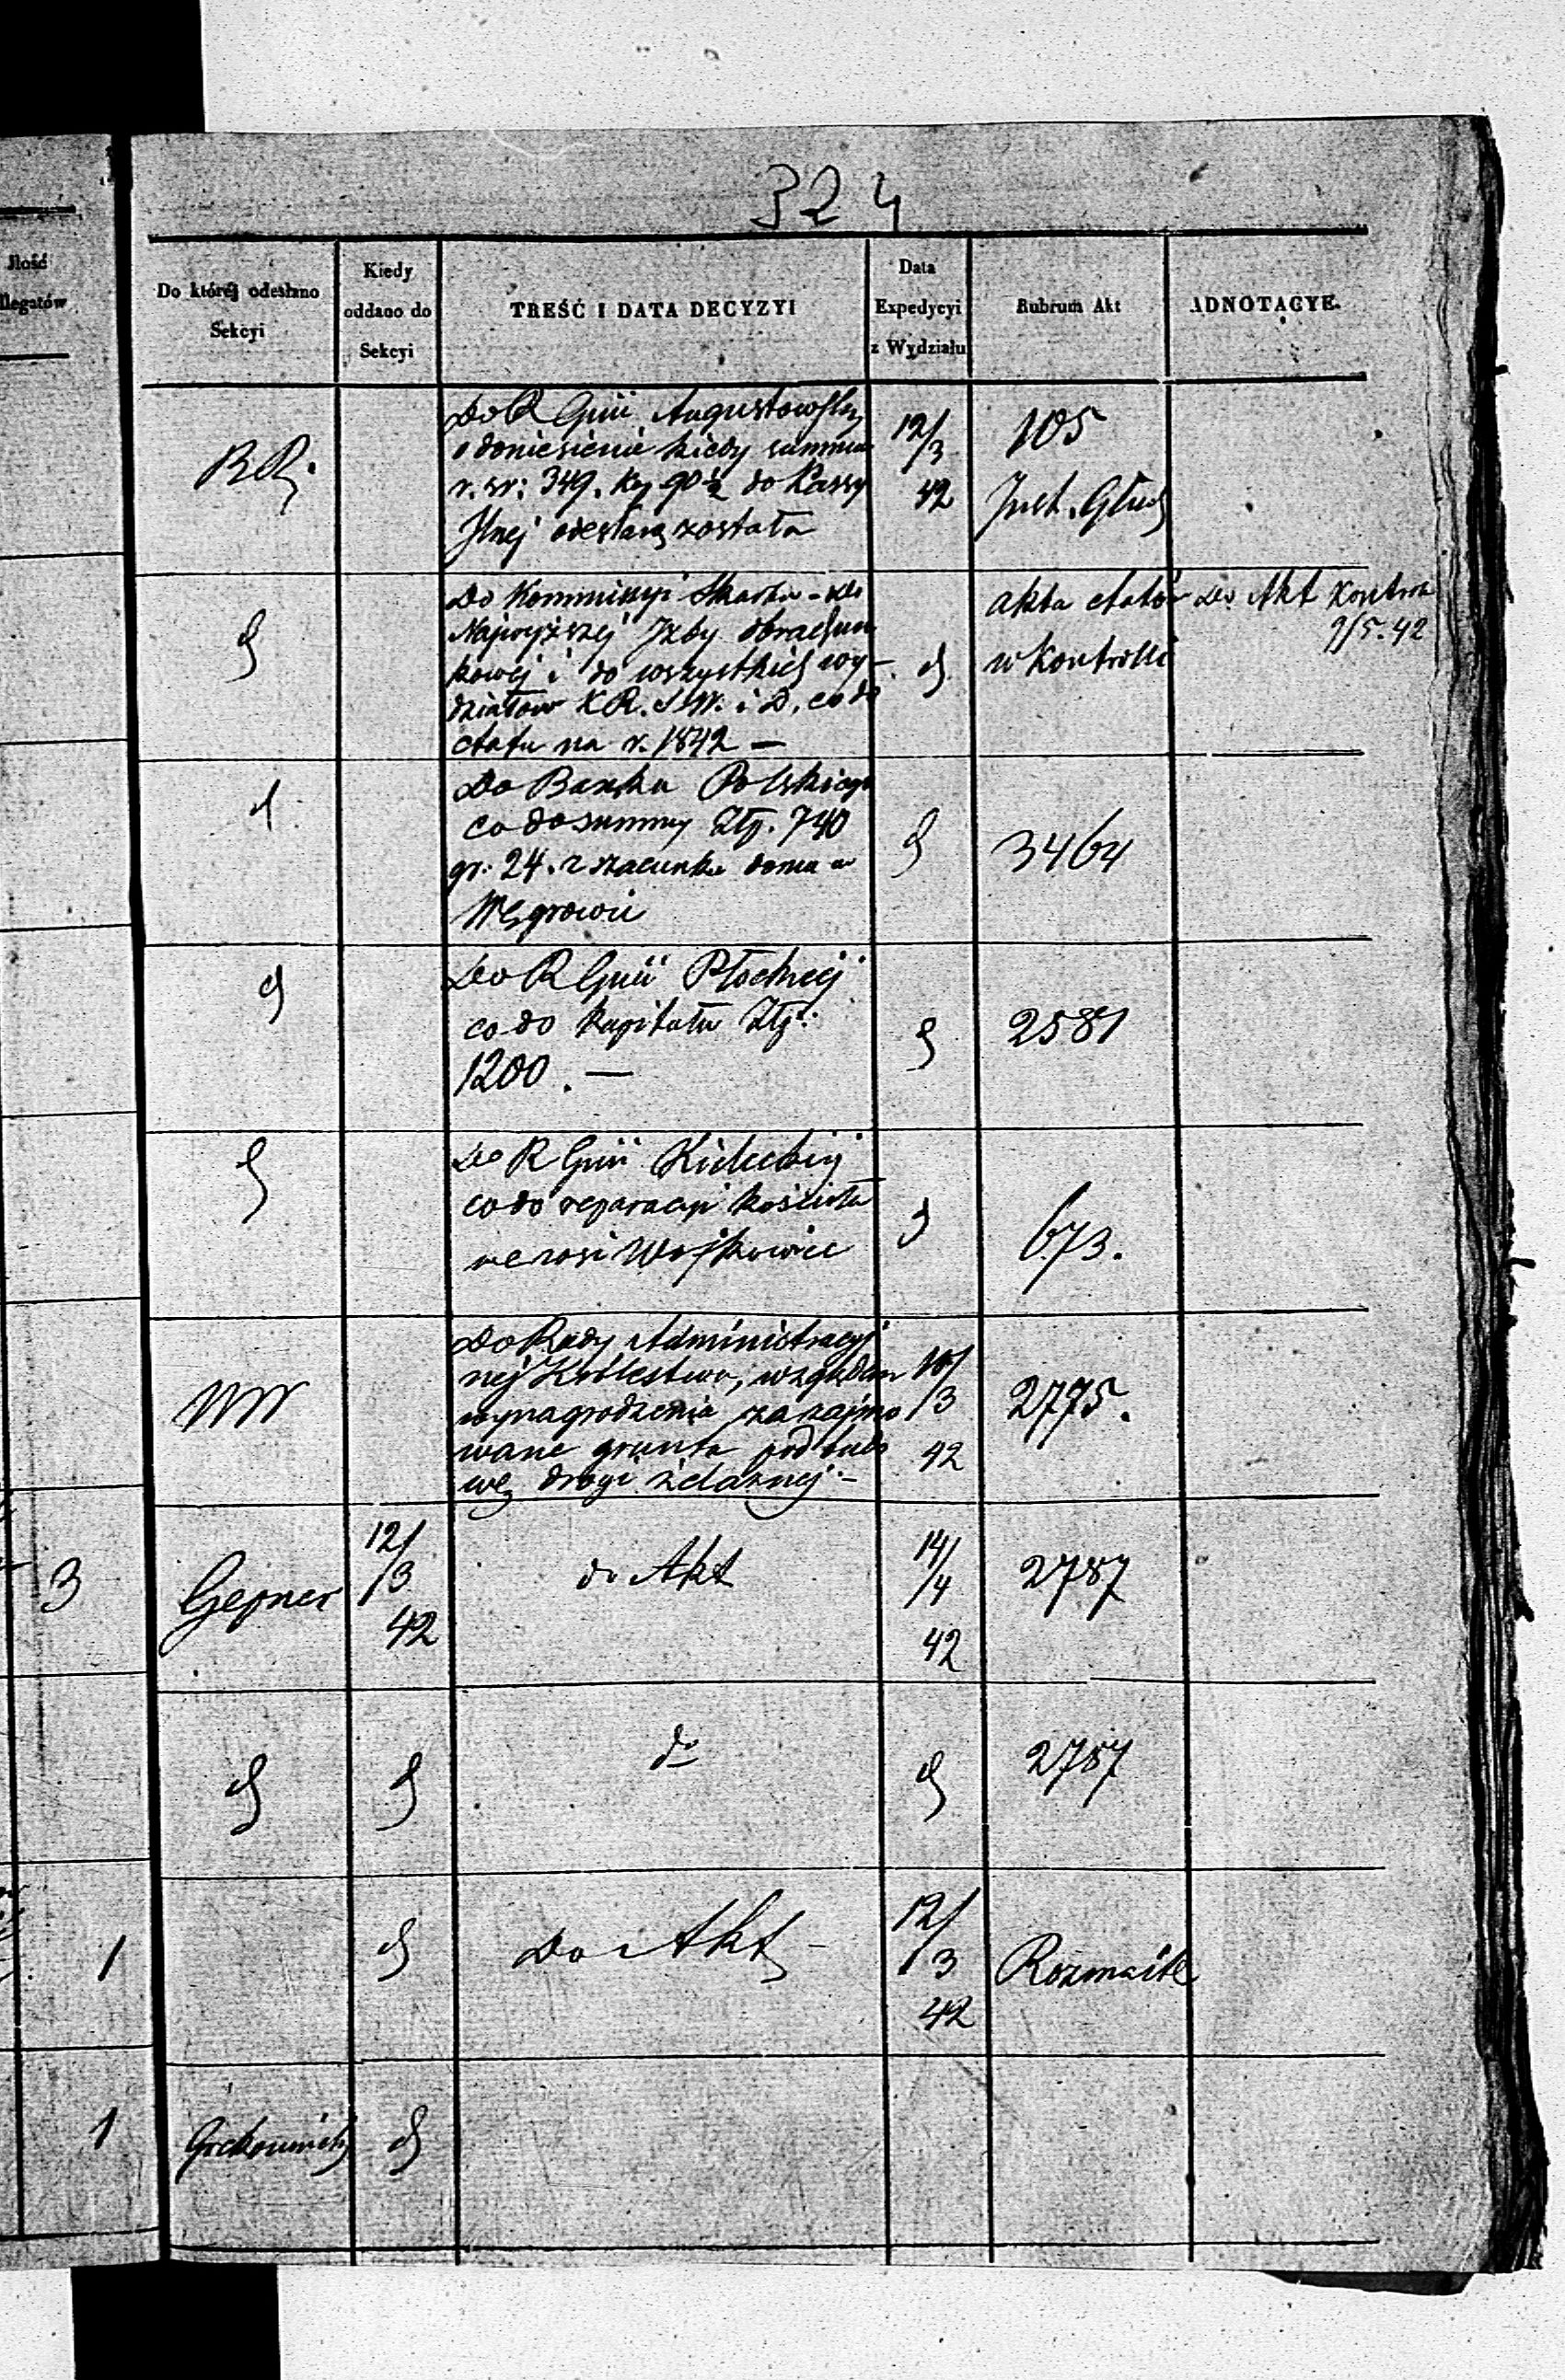 324
Jlość
llegatów
Do której odesłano
Sekcyi
Kiedy
oddano do
Sekcyi
TREŚĆ I DATA DECYZYI
Data
Expedycyi
z Wydziału
Rubrum Akt
ADNOTACYE.
Do R Gnii Augustowskiej
o doniesienie kiedy summa
r. sr: 349. kop 90½ do Kassy
Jlnej odesłaną została
12/3
42
105
Jnst. Głuch
Do Kommissyi Skarbu - do
Najwyższej Jzby Obrachun
kowej i do wszystkich wy-
działów K R. S W. i D, co do
etatu na r. 1842 —
akta etatów
w Kontrolli
Do Akt Kontroli
9/5.42
Do Banku Polskiego
co do summy Złp. 740
gr. 24. z szacunku domu w
Węgrowie
3464
Do R Gnii Płockiej
co do kapitału Złp:
1200. —
2581
Do R Gnii Kieleckiej
co do reparacyi kościoła
we wsi Wojkowice
673.
Do Rady Administracyj
nej Królestwa, względem
wynagrodzenia za zajmo
wane grunta pod budo
wę drogi żelaznej. -
10/3
42
2775.
3
Gepner
12/3
42
do Akt
14/4
42
2787
do
2787
1
Do Akt -
12/3
42
Rozmaite
1